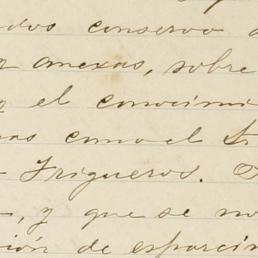 dos conservo
anexas, sobre
y el conocimi
mas como el Sr
Trigueros.
, y que se no
ión de esparcim